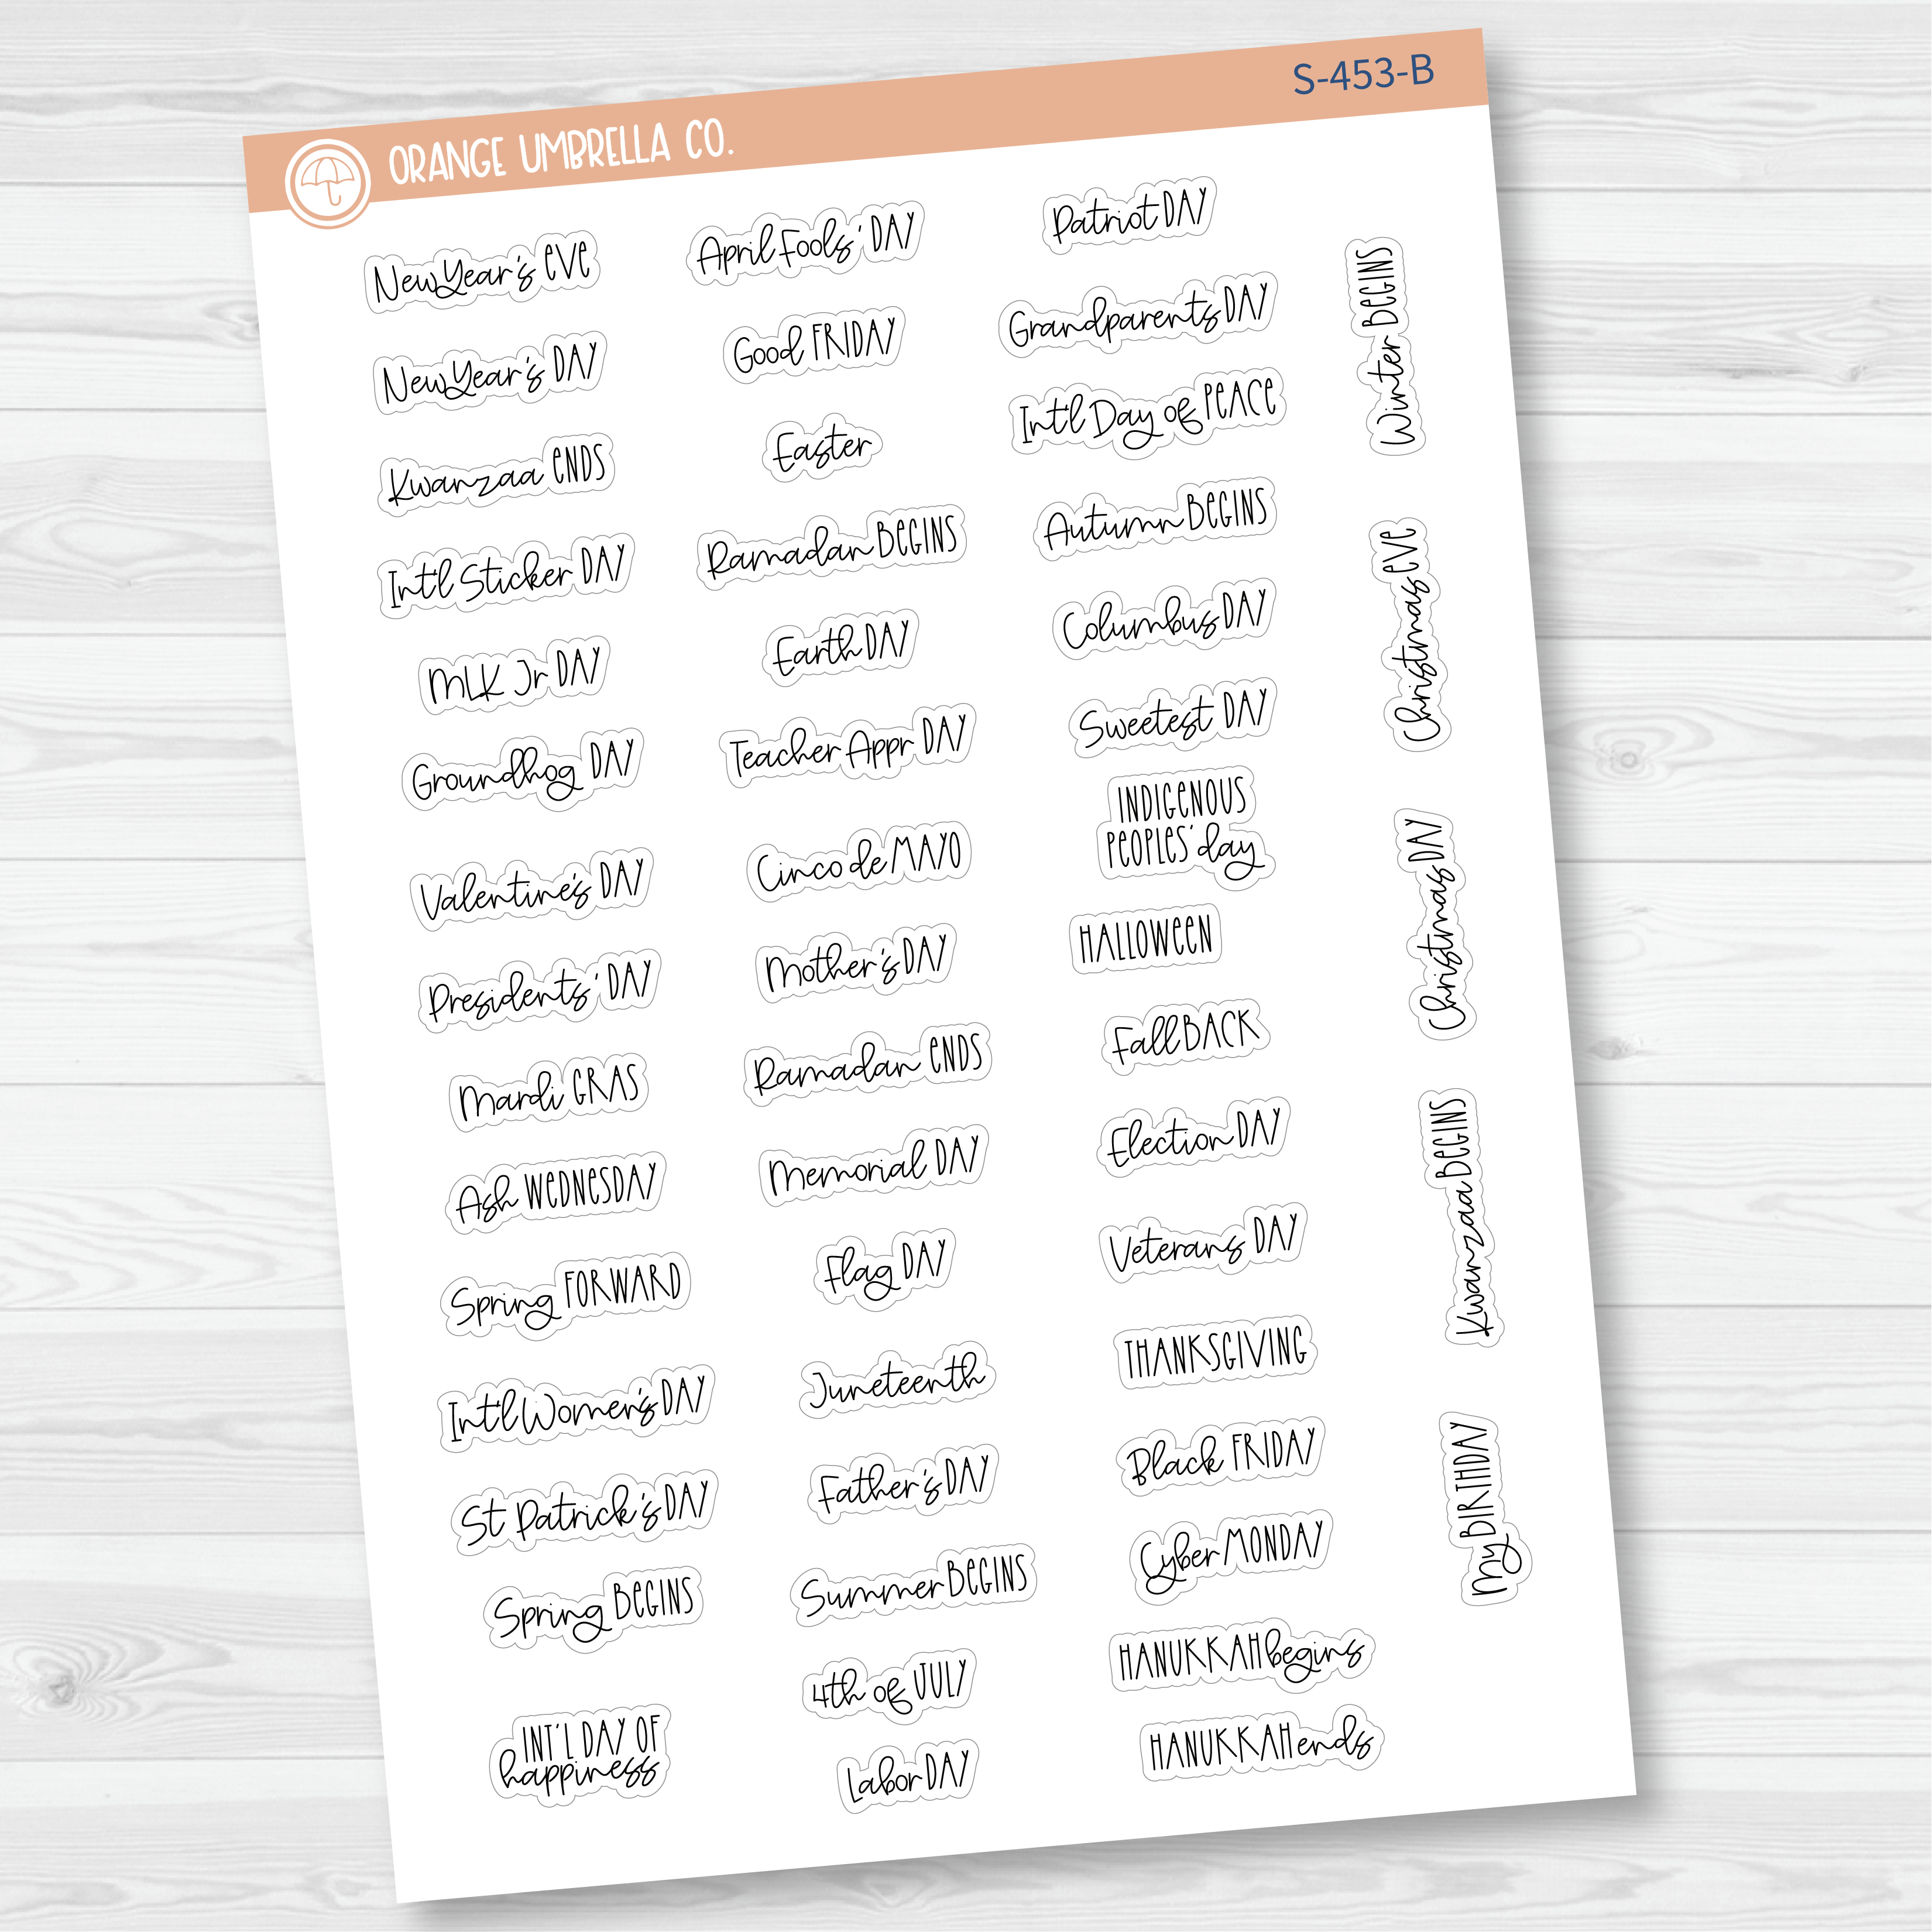 ORANGE UMBRELLA CO.
S-453-B
New Year's EVE
New Year's DAY
Kwanzaa ENDS
Int'l Sticker DAY
MLK Jr DAY
Groundhog DAY
Valentine's DAY
Presidents' DAY
Mardi GRAS
Ash WEDNESDAY
Spring FORWARD
Int'l Women's DAY
St Patrick's DAY
Spring BEGINS
INT'L DAY OF
happiness
April Fools' DAY
Good FRIDAY
Easter
Ramadan BEGINS
Earth DAY
Teacher Appr DAY
Cinco de MAYO
Mother's DAY
Ramadan ENDS
Memorial DAY
Flag DAY
Juneteenth
Father's DAY
Summer BEGINS
4th of JULY
Labor DAY
Patriot DAY
Grandparents DAY
Int'l Day of PEACE
Autumn BEGINS
Columbus DAY
Sweetest DAY
INDIGENOUS
PEOPLES' day
HALLOWEEN
Fall BACK
Election DAY
Veterans DAY
THANKSGIVING
Black FRIDAY
Cyber MONDAY
HANUKKAH begins
HANUKKAH ends
Winter BEGINS
Christmas EVE
Christmas DAY
Kwanzaa BEGINS
My BIRTHDAY